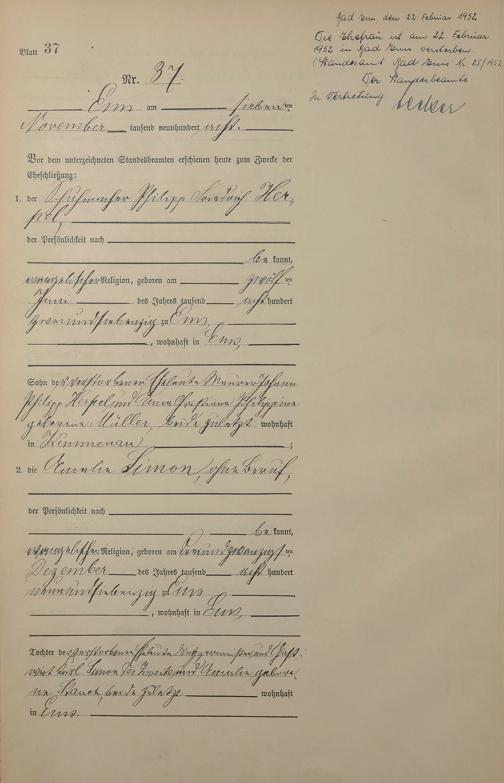 Bad Ems, den 22. Februar 1952
Die Ehefrau ist am 22. Februar
1952 in Bad Ems verstorben.
(Standesamt Bad Ems Nr. 25/1952
Der Standesbeamte
In Vertretung
Blatt 37
Nr. 37.
Ems am sieben ten
November tausend neunhundert acht.
Vor dem unterzeichneten Standesbeamten erschienen heute zum Zwecke der
Eheschließung:
1. der Schuhmacher Philipp Friedrich Her-
pel,
der Persönlichkeit nach
be kannt,
evangelischer Religion, geboren am zwölf ten
Juni des Jahres tausend acht hundert
zweiundsiebenzig zu Ems,
, wohnhaft in Ems,
Sohn der verstorbenen Eheleute Maurer Johann
Philipp Herpel und Anna Christiane Philippine
geborene Müller, beide zuletzt wohnhaft
in Kemmenau ;
2. die Amalie Simon, ohne Beruf,
der Persönlichkeit nach
be kannt,
evangelischer Religion, geboren am ten
Dezember des Jahres tausend acht hundert
neunundsiebenzig zu Ems
, wohnhaft in Ems,
Tochter der verstorbenen Eheleute Metzgermeister und Gast-
wirt Karl Simon der Zweite und Amalie gebore-
ne beide zuletzt wohnhaft
in Ems.